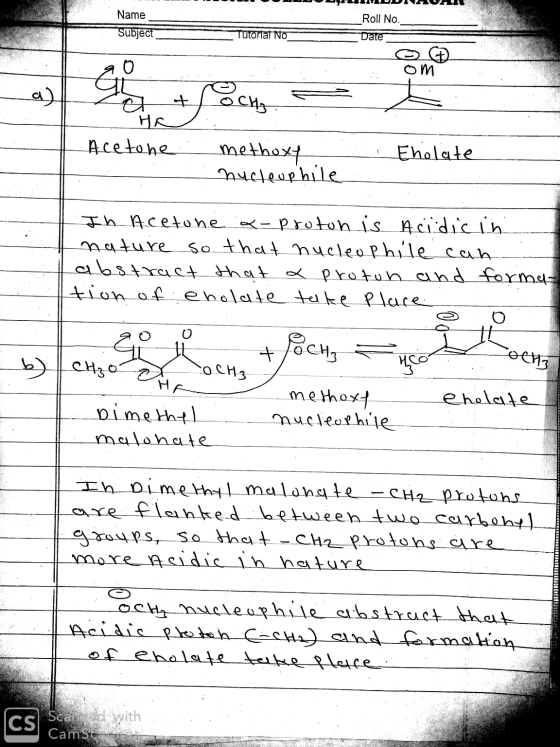 Name
Roll No.
Subject
Tutorial No
Date
a)
O
H
+
⊖
OCH3
⇌
⊖ ⊕
OM
Acetone
methoxy
nucleophile
Enolate
In Acetone α-proton is Acidic in
nature so that nucleophile can
abstract that α proton and forma-
tion of enolate take place
b)
O
O
CH3O
OCH3
H
+
⊖
OCH3
⇌
⊖
O
O
H3CO
OCH3
Dimethyl
malonate
methoxy
nucleophile
enolate
In Dimethyl malonate -CH2 protons
are flanked between two carbonyl
groups, so that -CH2 protons are
more Acidic in nature
⊖
OCH3 nucleophile abstract that
Acidic proton (-CH2) and formation
of enolate take place.
CS
Scanned with